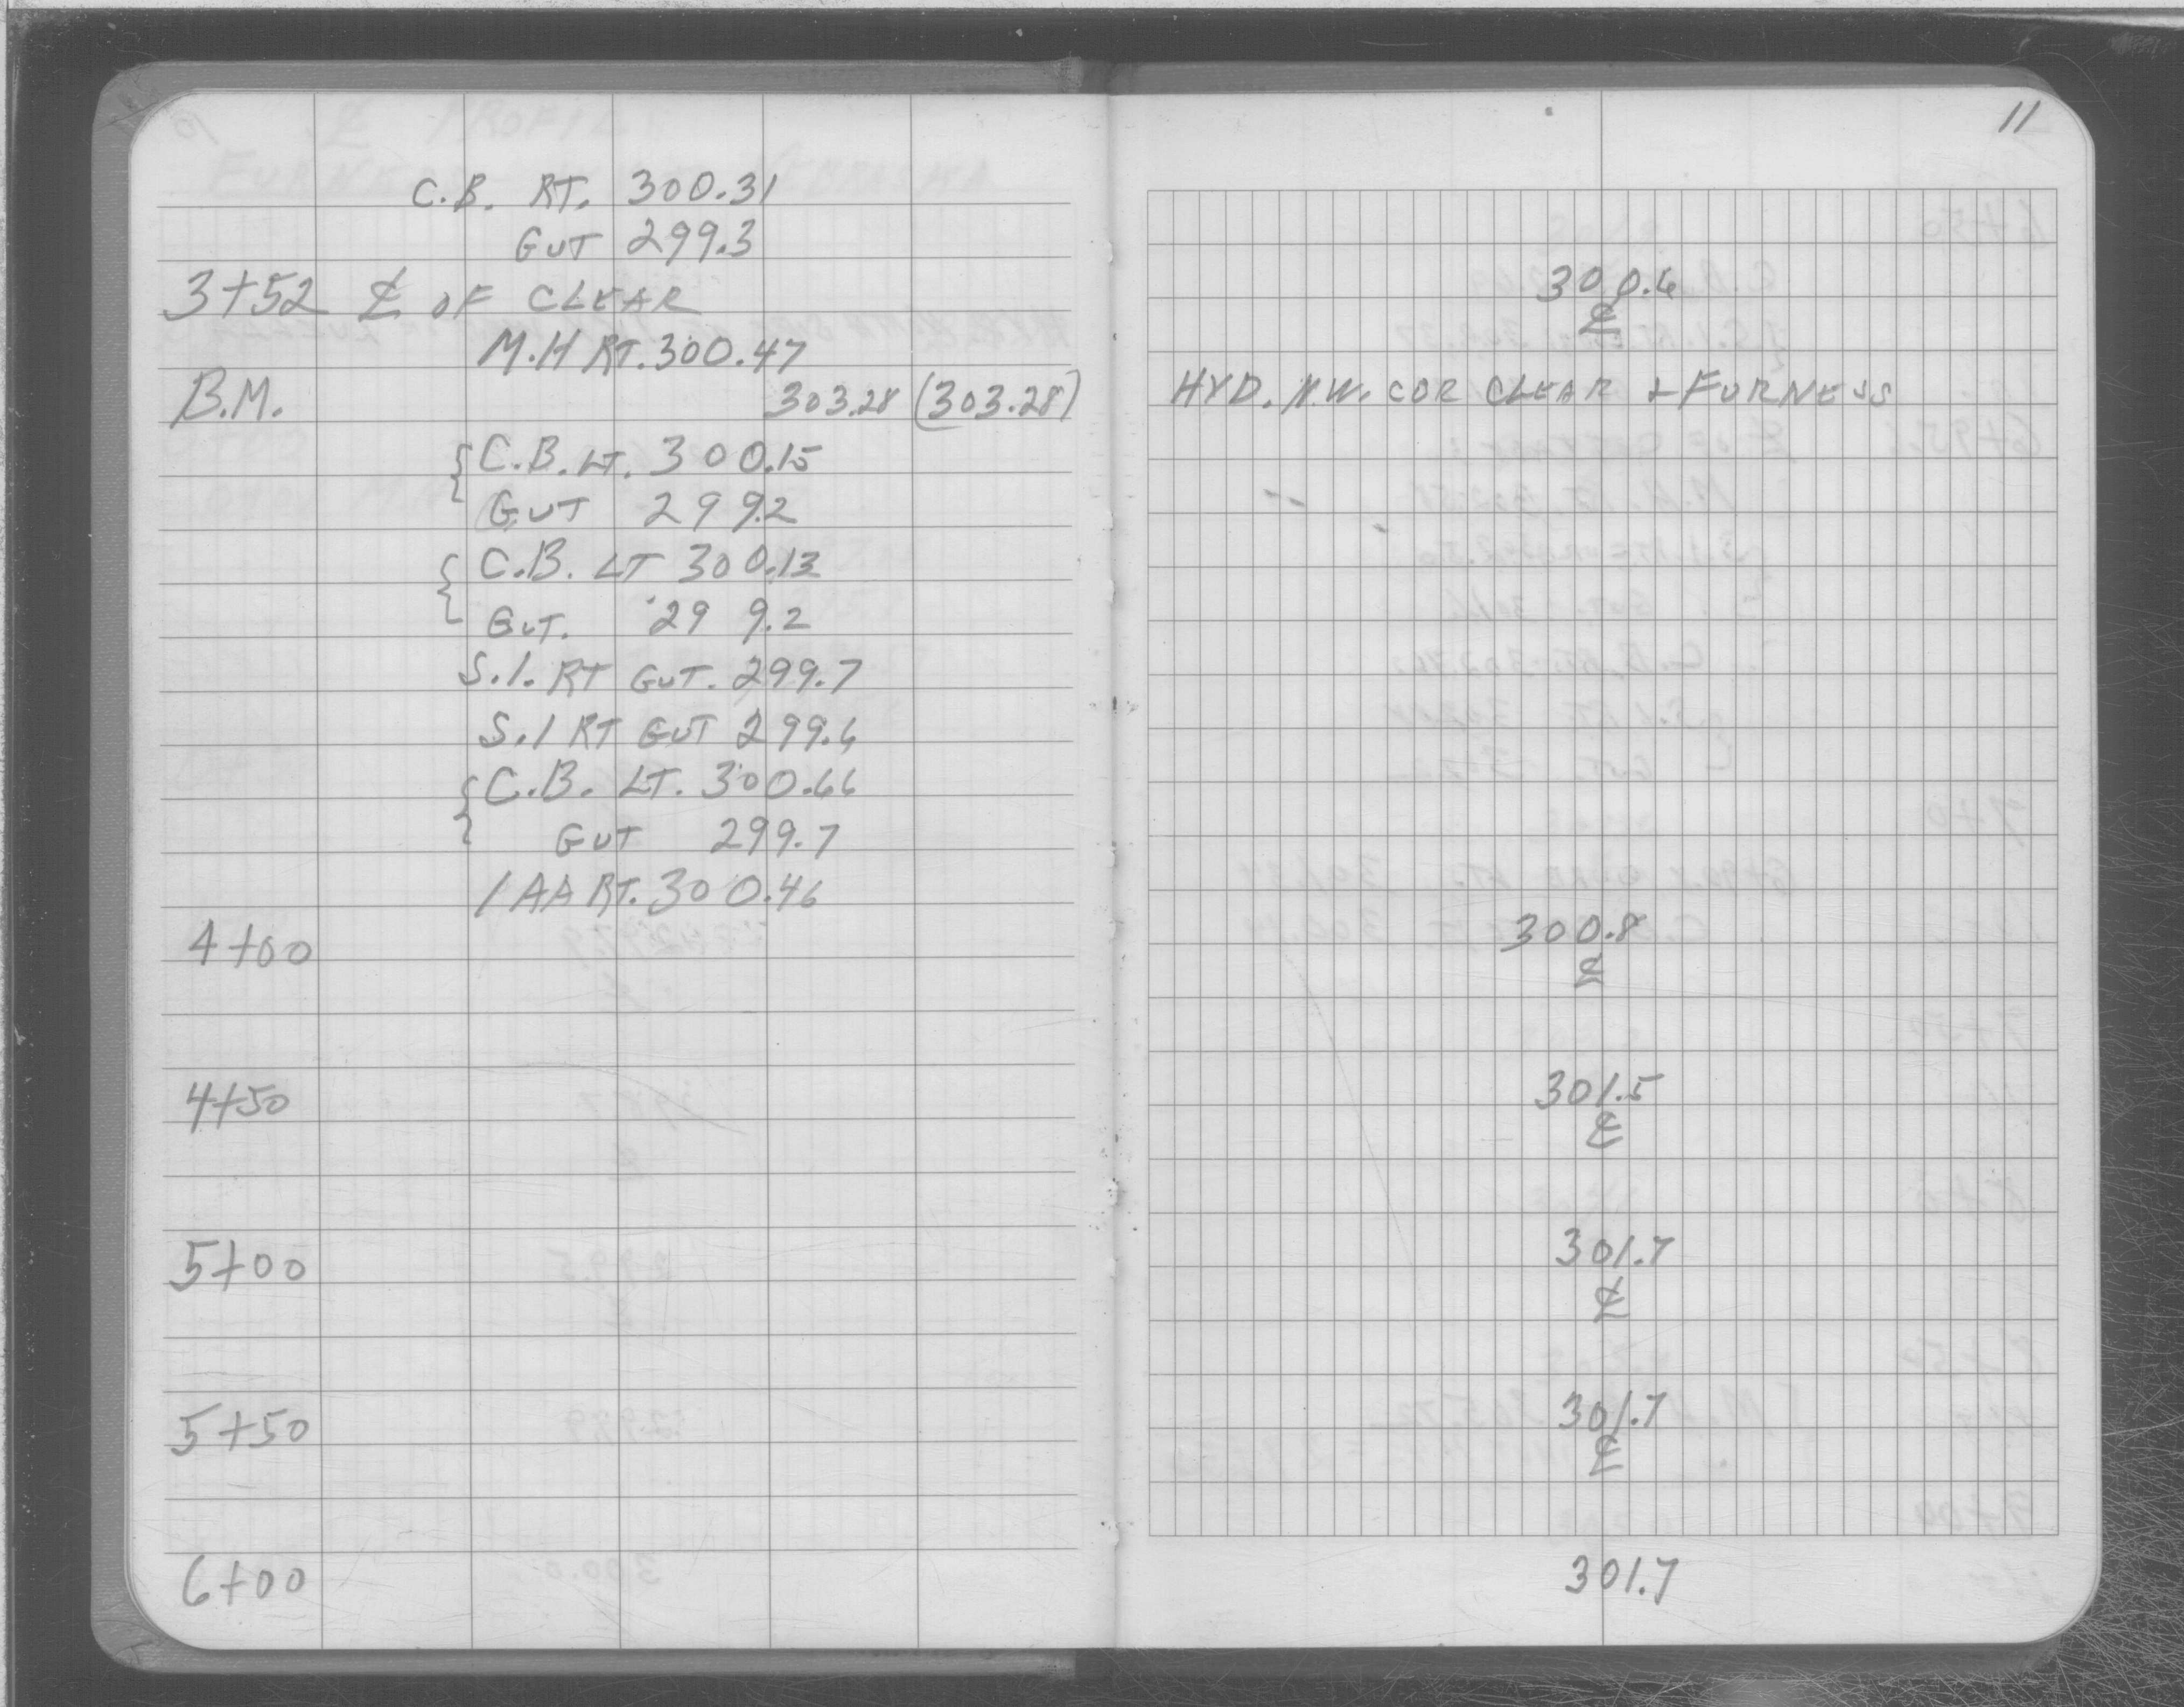 11
C.B. RT. 300.31
GUT 299.3
3+52 ℄ OF CLEAR 300.6
℄
M.H RT. 300.47
B.M. 303.28 (303.28) HYD. N.W. COR CLEAR & FURNESS
{ C.B. LT. 300.15
GUT 299.2
{ C.B. LT 300.13
GUT. 299.2
S.I. RT GUT. 299.7
S.I RT GUT 299.6
{ C.B. LT. 300.66
GUT 299.7
1 AA RT. 300.46
4+00 300.8
℄
4+50 301.5
℄
5+00 301.7
℄
5+50 301.7
℄
6+00 301.7